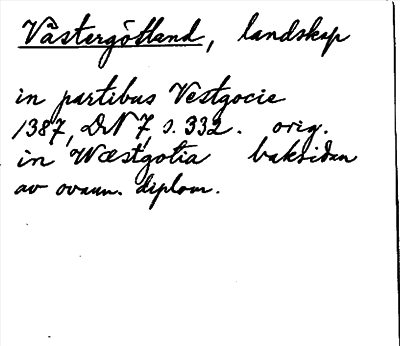 Västergötland, landskap
in partibus Vestgocie
1387, DN 7, s. 332. orig.
in Wæstgotia baksidan
av ovann. diplom.